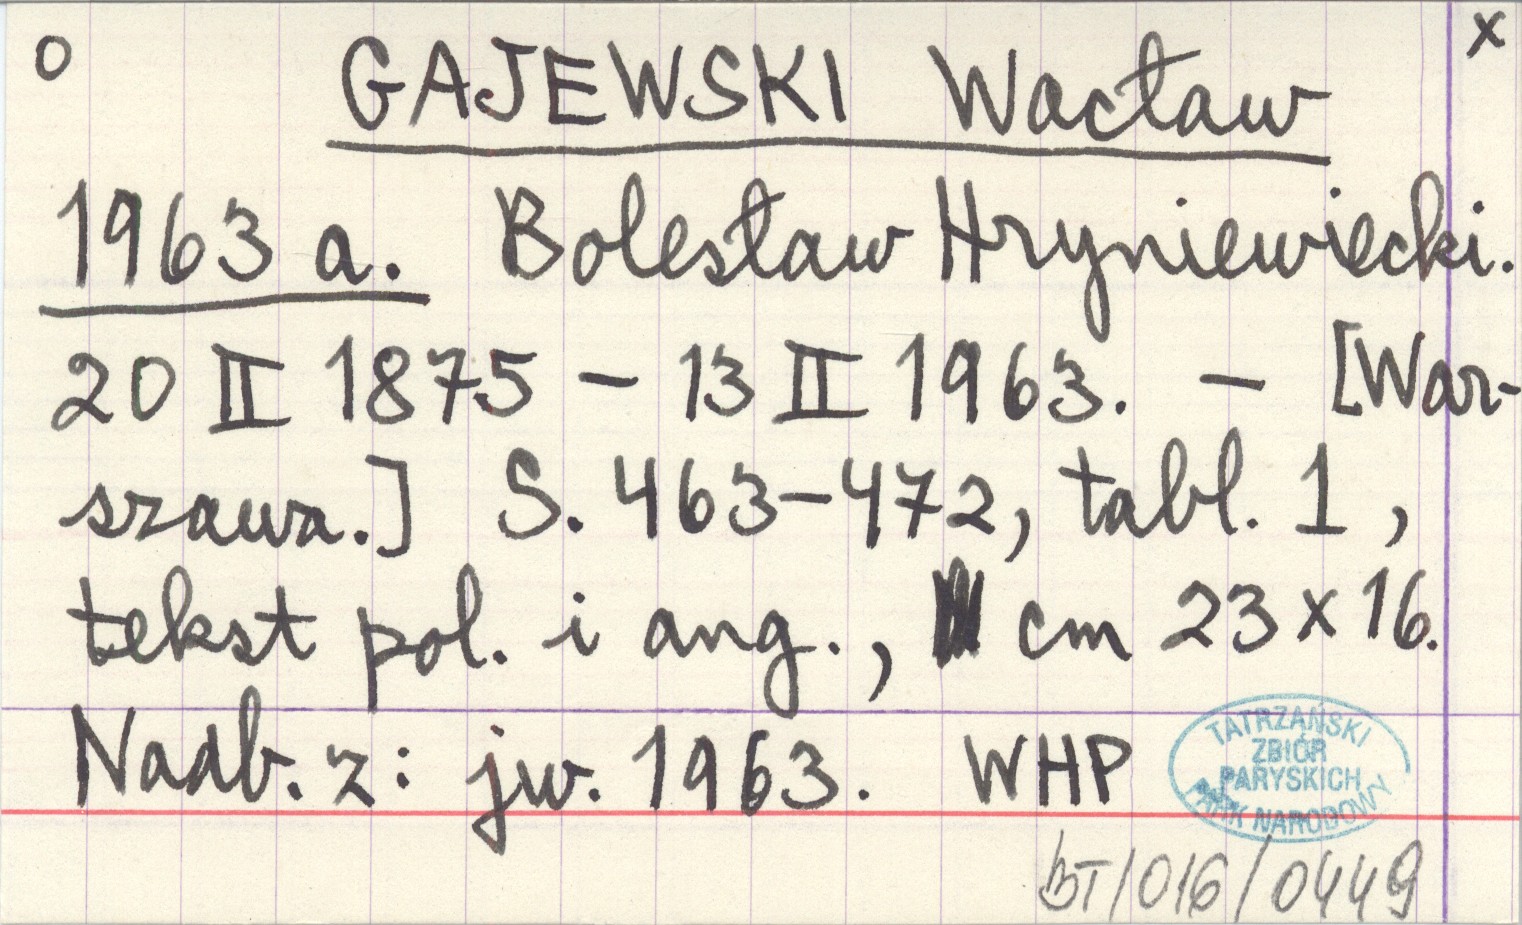 o GAJEWSKI Wacław x
1963 a. Bolesław Hryniewiecki.
20 II 1875 – 13 II 1963. – [War-
szawa.] S. 463–472, tabl. 1,
tekst pol. i ang., cm 23 x 16.
Nadb. z: jw. 1963. WHP
TATRZAŃSKI
ZBIÓR
PARYSKICH
PARK NARODOWY
BT/016/0449